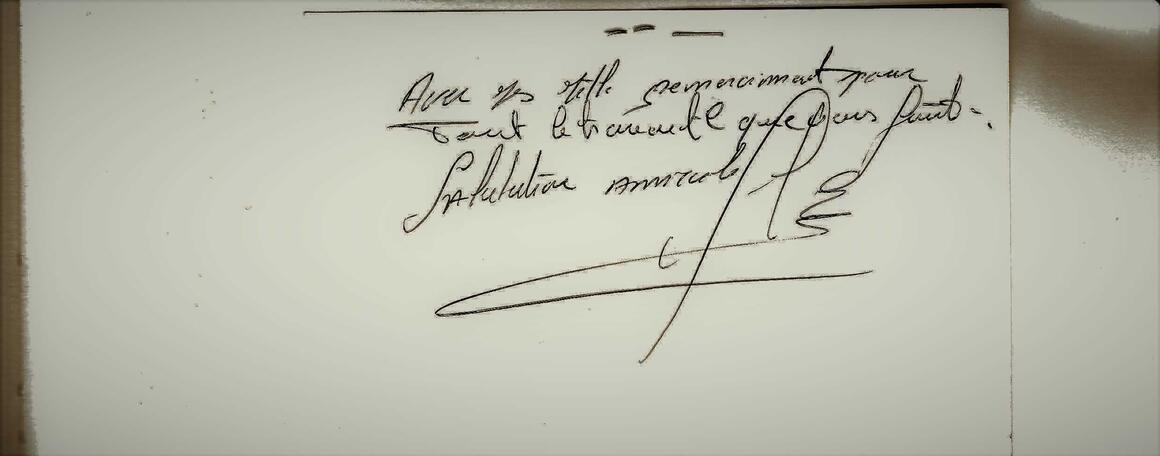 Avec mes mille remerciement pour
tout le travail que vous fait.
Salutation amicale